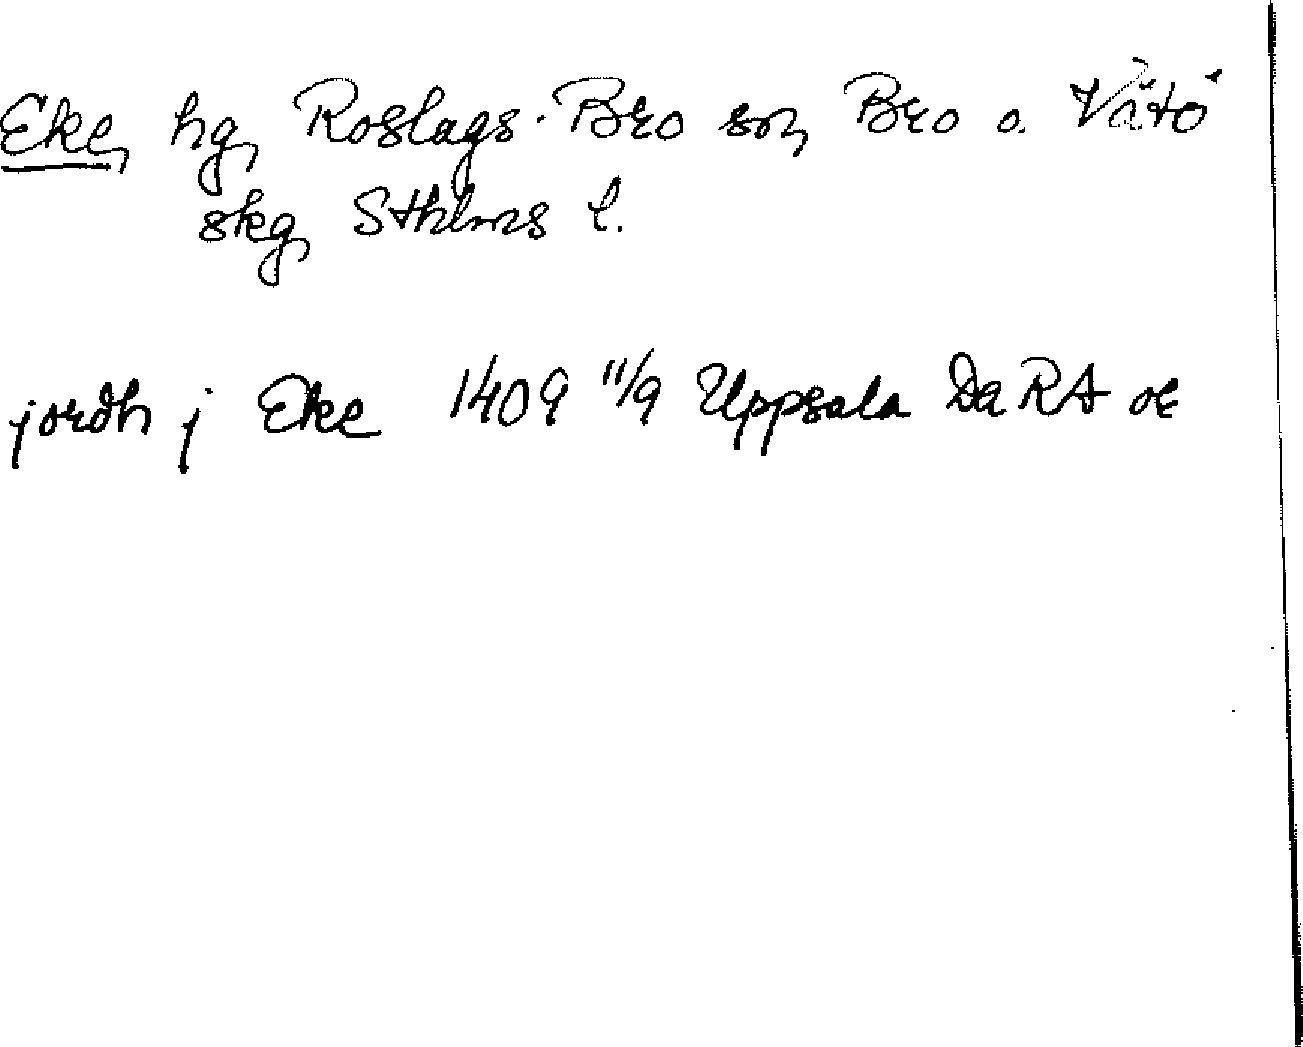 Eke, hg, Roslags-Bro sn, Bro o. Vätö
skg, Sthlms l.
jordh j Eke 1409 11/9 Uppsala Da RA or